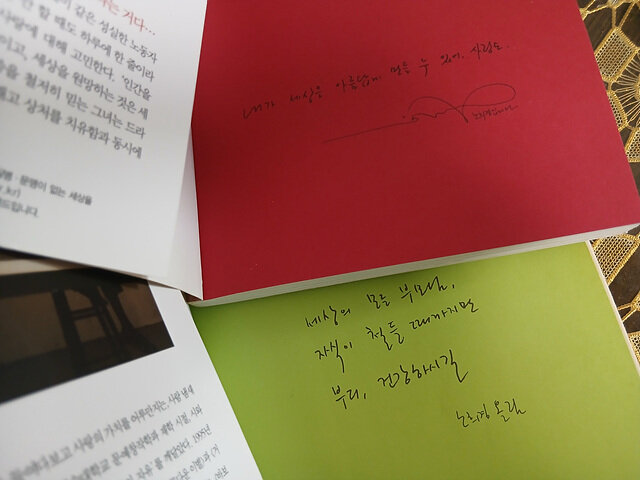 는 거다…
이 같은 성실한 노동자
한 할 때도 하루에 한 줄이라
사랑에 대해 고민한다. '인간을
이고, 세상을 원망하는 것은 세
을 철저히 믿는 그녀는 드라
보고 상처를 치유함과 동시에
문맹이 없는 세상을
드립니다.
내가 세상을 아름답게 만들 수 있어. 사랑도.
노희경
세상의 모든 부모님,
자식이 철들 때까지만
부디, 건강하시길
노희경 올림
들여다보고 사랑의 가치를 어루만지는, 사람 냄새
대학교 문예창작학과 재학 시절, 시와
유'를 깨달았다. 1995년
다운 이별>과 <거